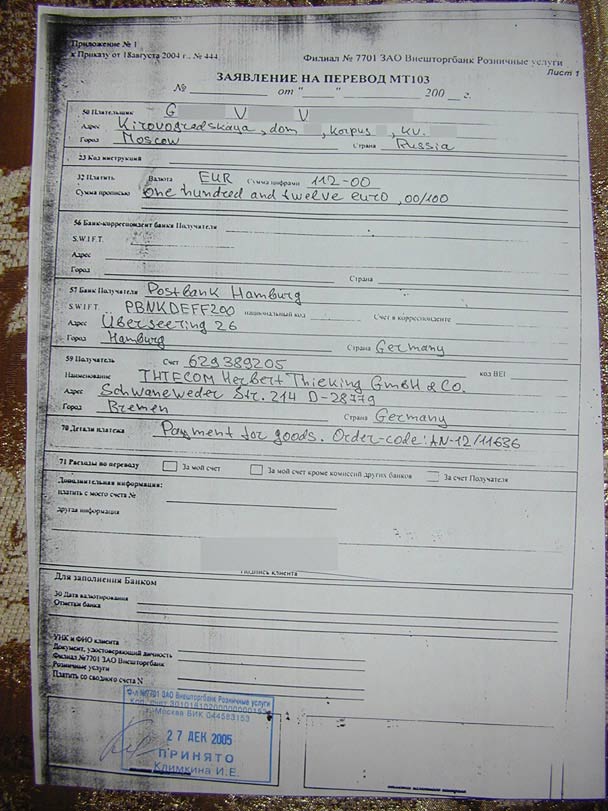 Приложение № 1
к Приказу от 18августа 2004 г., № 444
Филиал № 7701 ЗАО Внешторгбанк Розничные услуги
Лист 1
ЗАЯВЛЕНИЕ НА ПЕРЕВОД МТ103
№ от " " 200 г.
50 Плательщик G V V
Адрес Kirovogradskaya, dom , korpus , kv.
Город Moscow Страна Russia
23 Код инструкций
32 Платить Валюта EUR Сумма цифрами 112-00
Сумма прописью one hundred and twelve euro, 00/100
56 Банк-корреспондент банка Получателя
S.W.I.F.T.
Адрес
Город Страна
57 Банк Получателя Postbank Hamburg
S.W.I.F.T. PBNKDEFF200 национальный код Счет в корреспонденте
Адрес Überseering 26
Город Hamburg Страна Germany
59 Получатель Счет 629389205 код BEI
Наименование THTECOM Herbert Thieking GmbH & Co.
Адрес Schwaneweder Str. 214 D-28779
Город Bremen Страна Germany
70 Детали платежа Payment for goods. Order-code: AN-12/11636
71 Расходы по переводу За мой счет За мой счет кроме комиссий других банков За счет Получателя
Дополнительная информация:
платить с моего счета №
другая информация
подпись клиента
Для заполнения Банком
30 Дата валютирования
Отметки банка
УНК и ФИО клиента
Документ, удостоверяющий личность
Филиал №7701 ЗАО Внешторгбанк
Розничные услуги
Платить со сводного счета N
Ф-л №7701 ЗАО Внешторгбанк Розничные услуги
г. Москва БИК 044583153
27 ДЕК 2005
ПРИНЯТО
Климкина И.Е.